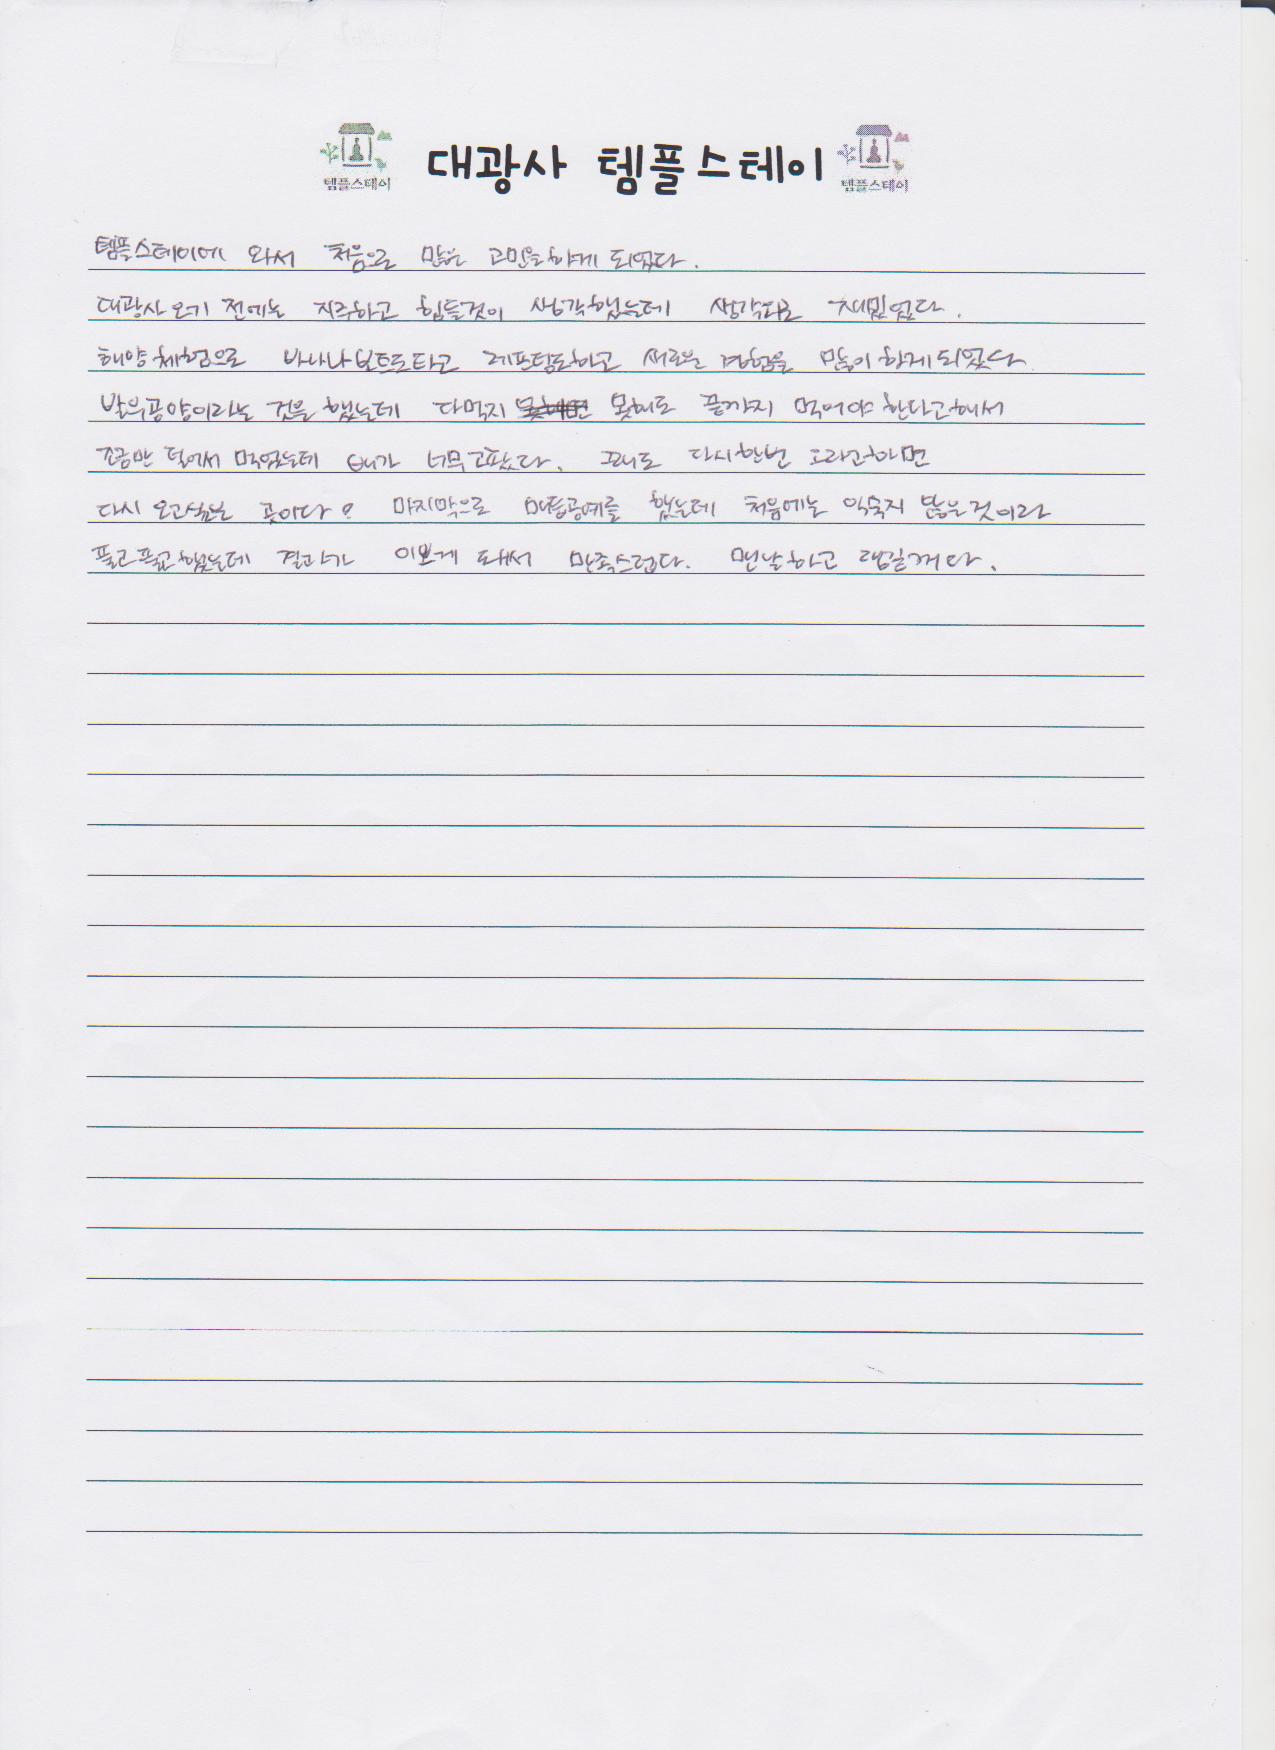 템플스테이 대광사 템플스테이 템플스테이
템플스테이에 와서 처음으로 많은 고민을하게 되었다.
대광사 오기 전에는 지루하고 힘들것이 생각했는데 생각외로 재밌었다.
해양체험으로 바나나보트도타고 레프팅도하고 새로운 경험을 많이 하게되었다
발우공양이라는 것을 했는데 다먹지 못해도 끝까지 먹어야 한다고해서
조금만 덜어서 먹었는데 배가 너무고팠다. 그래도 다시한번 오라고하면
다시 오고싶은 곳이다. 마지막으로 매듭공예를 했는데 처음에는 익숙지 많은것이라
풀고풀고했는데 결과가 이쁘게 돼서 만족스럽다. 맨날하고 댕길꺼다.